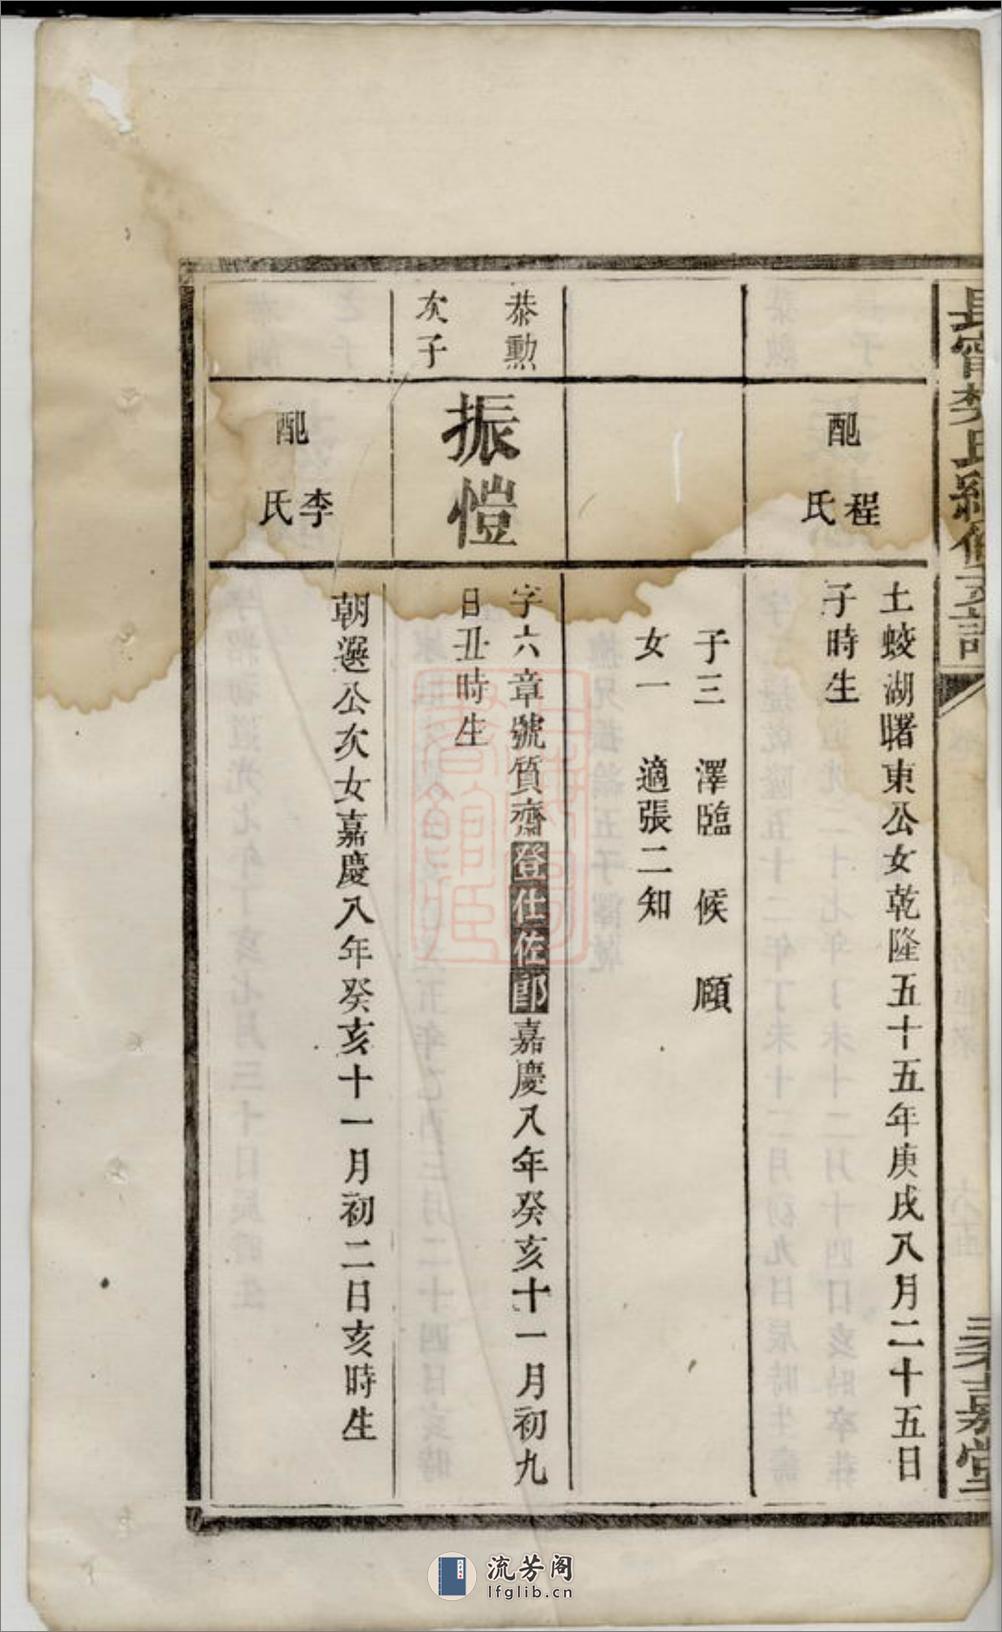 配
程氏
土蛟湖曙東公女乾隆五十五年庚戌八月二十五日
子時生
子三 澤臨 候 願
女一 適張二知
恭勳
次子
振愷
字六章號質齋登仕佐郎嘉慶八年癸亥十一月初九
日丑時生
配
李氏
朝選公次女嘉慶八年癸亥十一月初二日亥時生
流芳阁
lfglib.cn